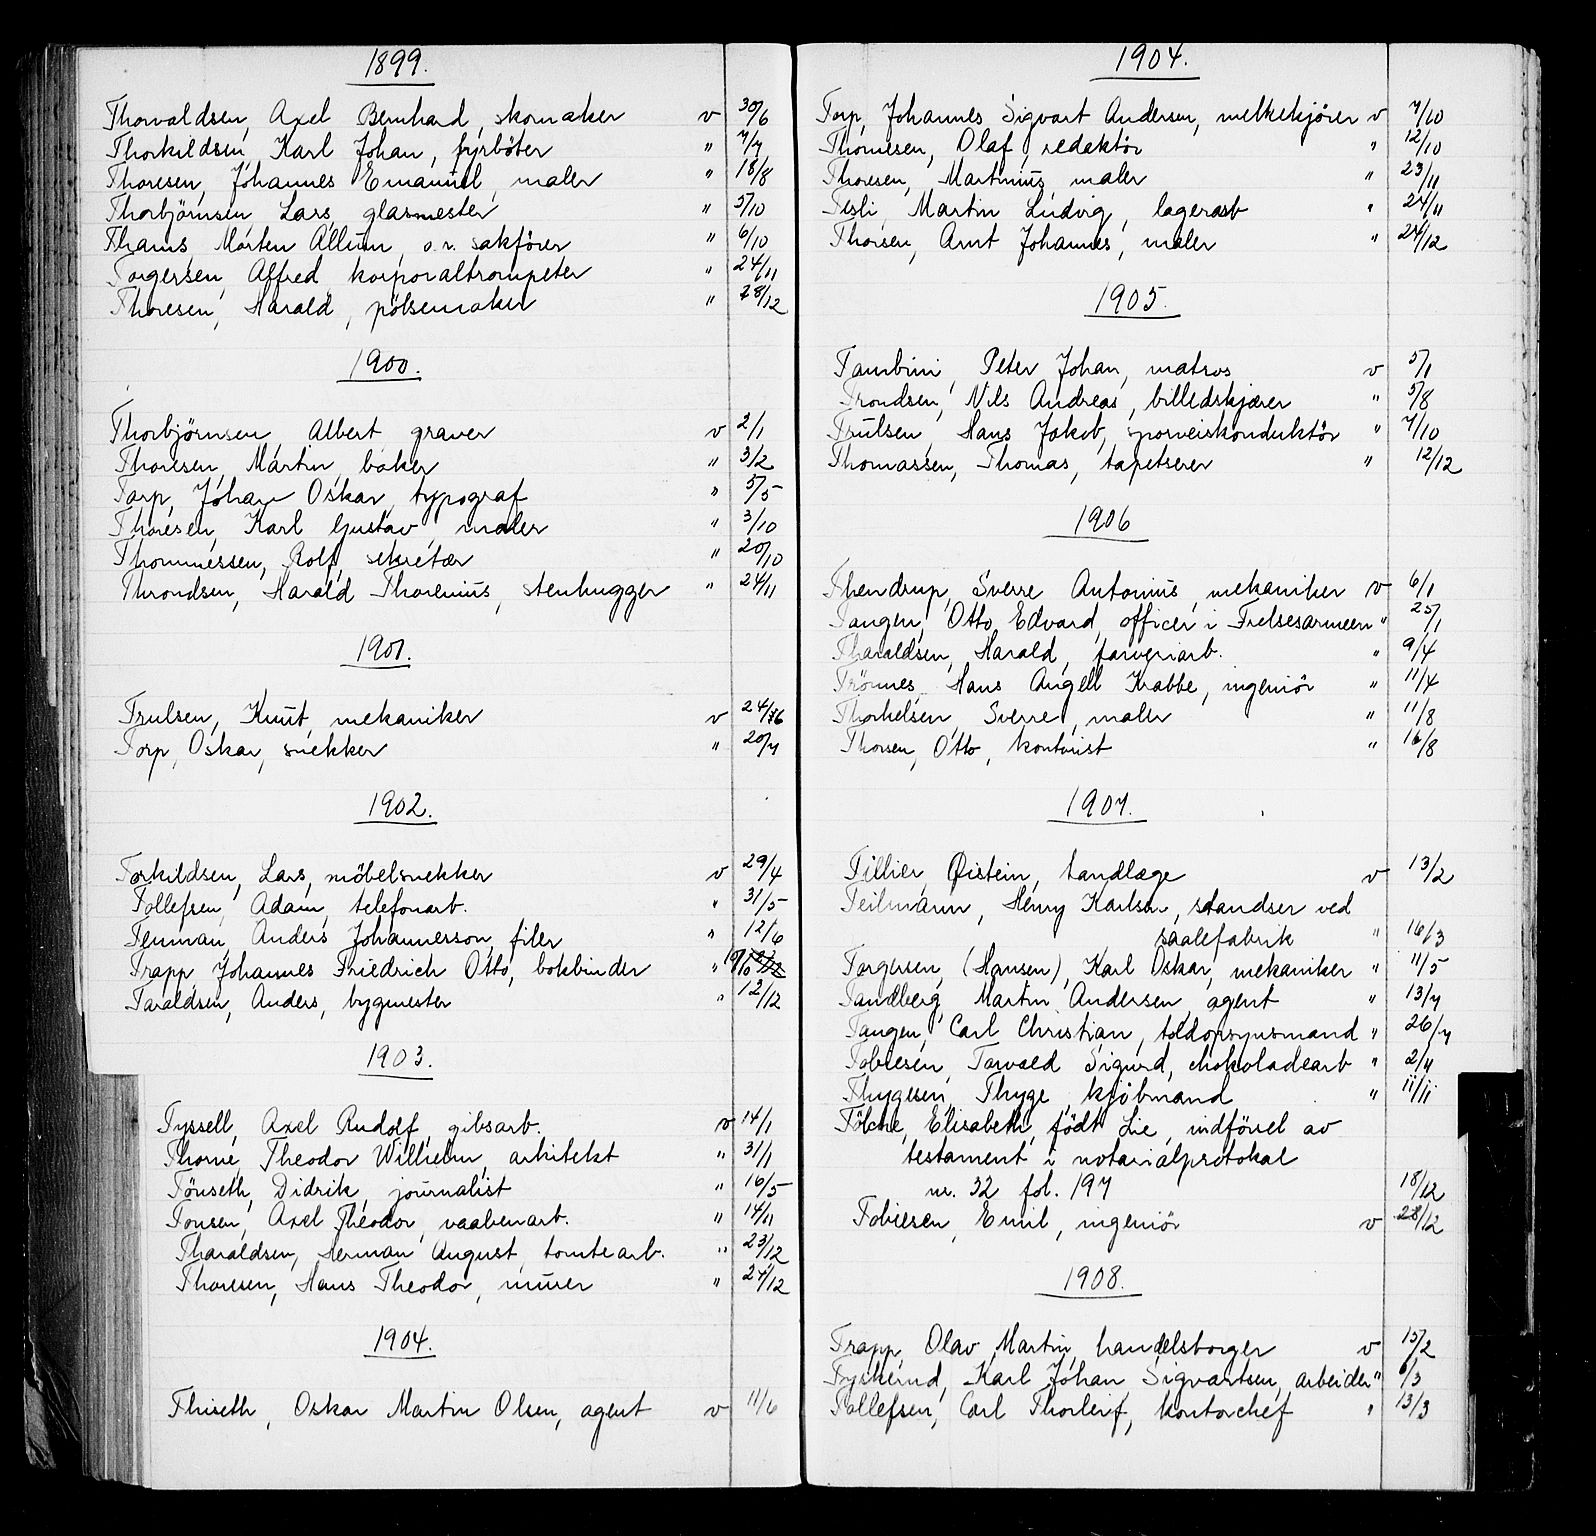 1899.
Thorvaldsen, Axel Bernhard, skomaker v 30/6
Thorkildsen, Karl Johan, fyrböter " 7/7
Thoresen, Johannes Emanuel, maler " 18/8
Thorbjörnsen, Lars, glasmester " 5/10
Thams, Morten Allum, o.r. sakförer " 6/10
Torgersen, Alfred, korporaltrompeter " 24/11
Thoresen, Harald, pölsemaker " 28/12
1900.
Thorbjörnsen, Albert, graver v 2/1
Thoresen, Martin, baker " 3/2
Torp, Johan Oskar, typograf " 5/5
Thoresen, Karl Gustav, maler " 3/10
Thommessen, Rolf, sekretær " 20/10
Throndsen, Harald Thorenius, stenhugger " 24/11
1901.
Trulsen, Knut, mekaniker v 24/6
Torp, Oskar, snekker " 20/7
1902.
Torkildsen, Lars, möbelsnekker v 29/4
Tollefsen, Adam, telefonarb. " 31/5
Tenman, Anders Johannesson, filer " 12/6
Trapp, Johannes Friedrich Otto, bokbinder " 19/10
Taraldsen, Anders, bygmester " 12/12
1903.
Tyssell, Axel Rudolf, gibsarb. v 14/1
Thorne, Theodor Wilhelm, arkitekt " 31/1
Tönseth, Didrik, journalist " 16/5
Tonsen, Axel Theodor, vaabenarb. " 14/11
Tharaldsen, Herman August, tomtearb. " 23/12
Thoresen, Hans Theodor, murer " 24/12
1904.
Thiseth, Oskar Martin Olsen, agent v 11/6
1904.
Torp, Johannes Sigvart Andersen, melkekjörer v 7/10
Thomesen, Olaf, redaktör " 12/10
Thoresen, Martinius, maler " 23/11
Tesli, Martin Ludvig, lagerarb " 24/11
Thorsen, Arnt Johannes, maler " 24/12
1905.
Tambini, Peter Johan, matros v 5/1
Trondsen, Nils Andreas, billedskjærer " 5/8
Trulsen, Hans Jakob, sporveiskonduktör " 7/10
Thomassen, Thomas, tapetserer " 12/12
1906
Thendrup, Sverre Antonius, mekaniker v 6/1
Tangen, Otto Edvard, officer i Frelsesarmeen " 25/1
Tharaldsen, Harald, farveriarb. " 9/4
Trönnes, Hans Angell Krabbe, ingeniör " 11/4
Thorkelsen, Sverre, maler " 11/8
Thorsen, Otto, kontorist " 16/8
1907.
Tillier, Øistein, tandlæge v 13/2
Teilmann, Henry Karlsen, standser ved
saalefabrik " 16/3
Torgersen, (Hansen), Karl Oskar, mekaniker " 11/5
Tandberg, Martin Andersen, agent " 13/7
Tangen, Carl Christian, toldopsynsmand " 26/7
Tobiesen, Torvald Sigurd, chokoladearb " 2/7
Thygesen, Thyge, kjöbmand " 11/11
Tölche, Elisabeth, födt Lie, indförsel av
testament i notarialprotokol
nr. 32 fol. 197 18/12
Tobiesen, Emil, ingeniör v 28/12
1908.
Trapp, Olav Martin, handelsborger v 15/2
Tyskerud, Karl Johan Sigvartsen, arbeider " 6/3
Tollefsen, Carl Thorleif, kontorchef " 13/3